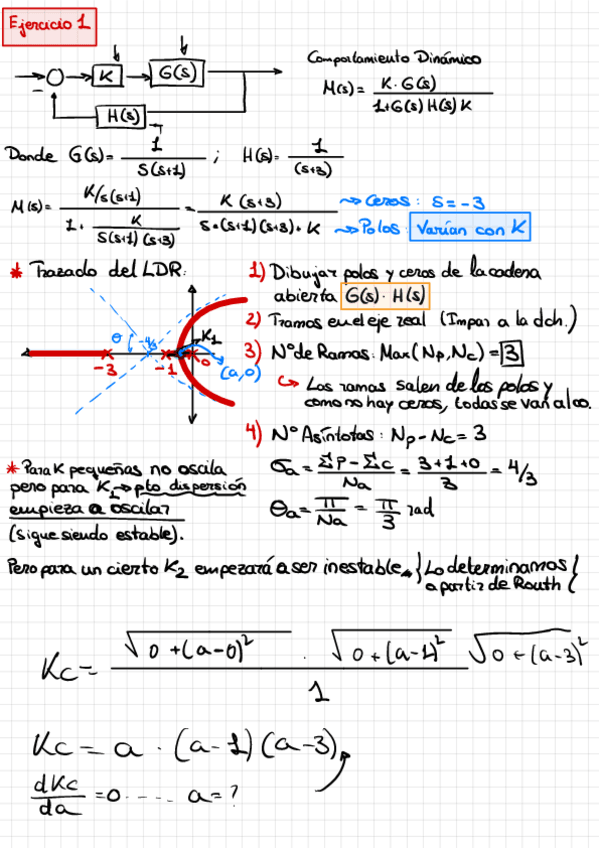 Ejercicio 1
K
G(s)
H(s)
-
Comportamiento Dinámico
M(s) = K·G(s) / 1+G(s)H(s)K
Donde G(s) = 1 / s(s+1) ; H(s) = 1 / (s+3)
M(s) = K/s(s+1) / 1 + K / s(s+1)(s+3) = K(s+3) / s·(s+1)(s+3)+K
Ceros: s = -3
Polos: Varían con K
* Trazado del LDR:
θ
-4/3
K1
-3
-1
0
(a,0)
1) Dibujar polos y ceros de la cadena
abierta G(s)·H(s)
2) Tramos en el eje real (Impar a la dch.)
3) Nº de Ramas: Max(Np,Nc) = 3
Las ramas salen de los polos y
como no hay ceros, todas se van al ∞.
4) Nº Asíntotas: Np - Nc = 3
σa = Σp - Σc / Na = 3+1+0 / 3 = 4/3
θa = π / Na = π / 3 rad
* Para K pequeñas no oscila
pero para K1 → pto dispersión
empieza a oscilar
(sigue siendo estable).
Pero para un cierto K2 empezará a ser inestable → {Lo determinamos
a partir de Routh {
Kc = √0+(a-0)² · √0+(a-1)² √0+(a-3)² / 1
Kc = a · (a-1)(a-3)
dKc / da = 0 ---- a = ?